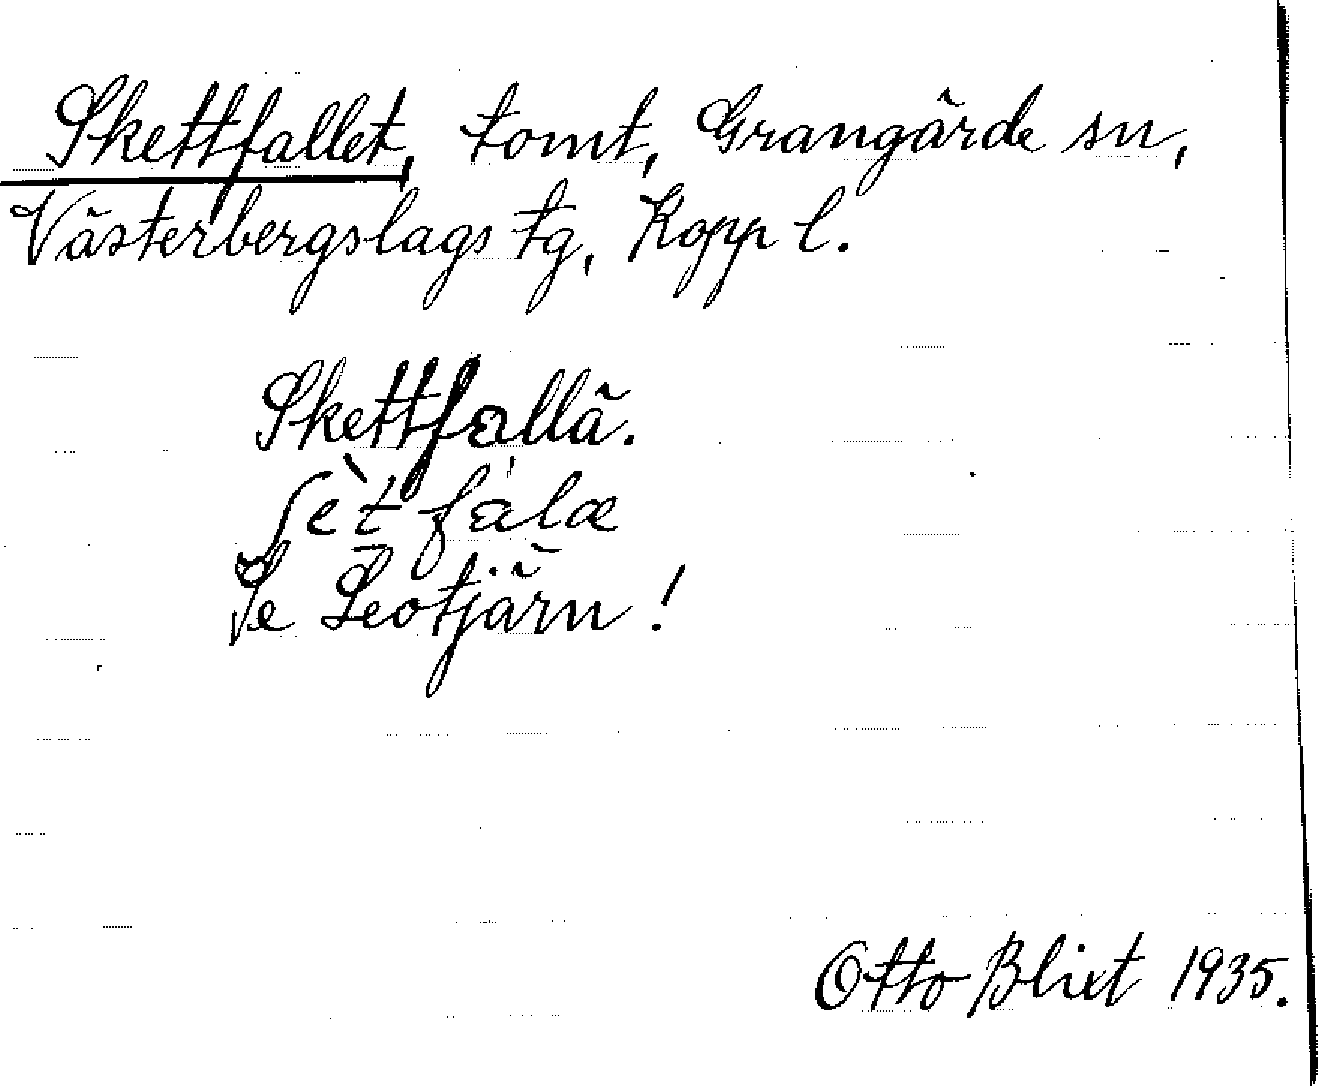 Skettfallet, tomt, Grangärde sn,
Västerbergslags tg, Kopp l.
Skettfallä.
ʃèt fɑ̀lœ
Se Leotjärn!
Otto Blixt 1935.